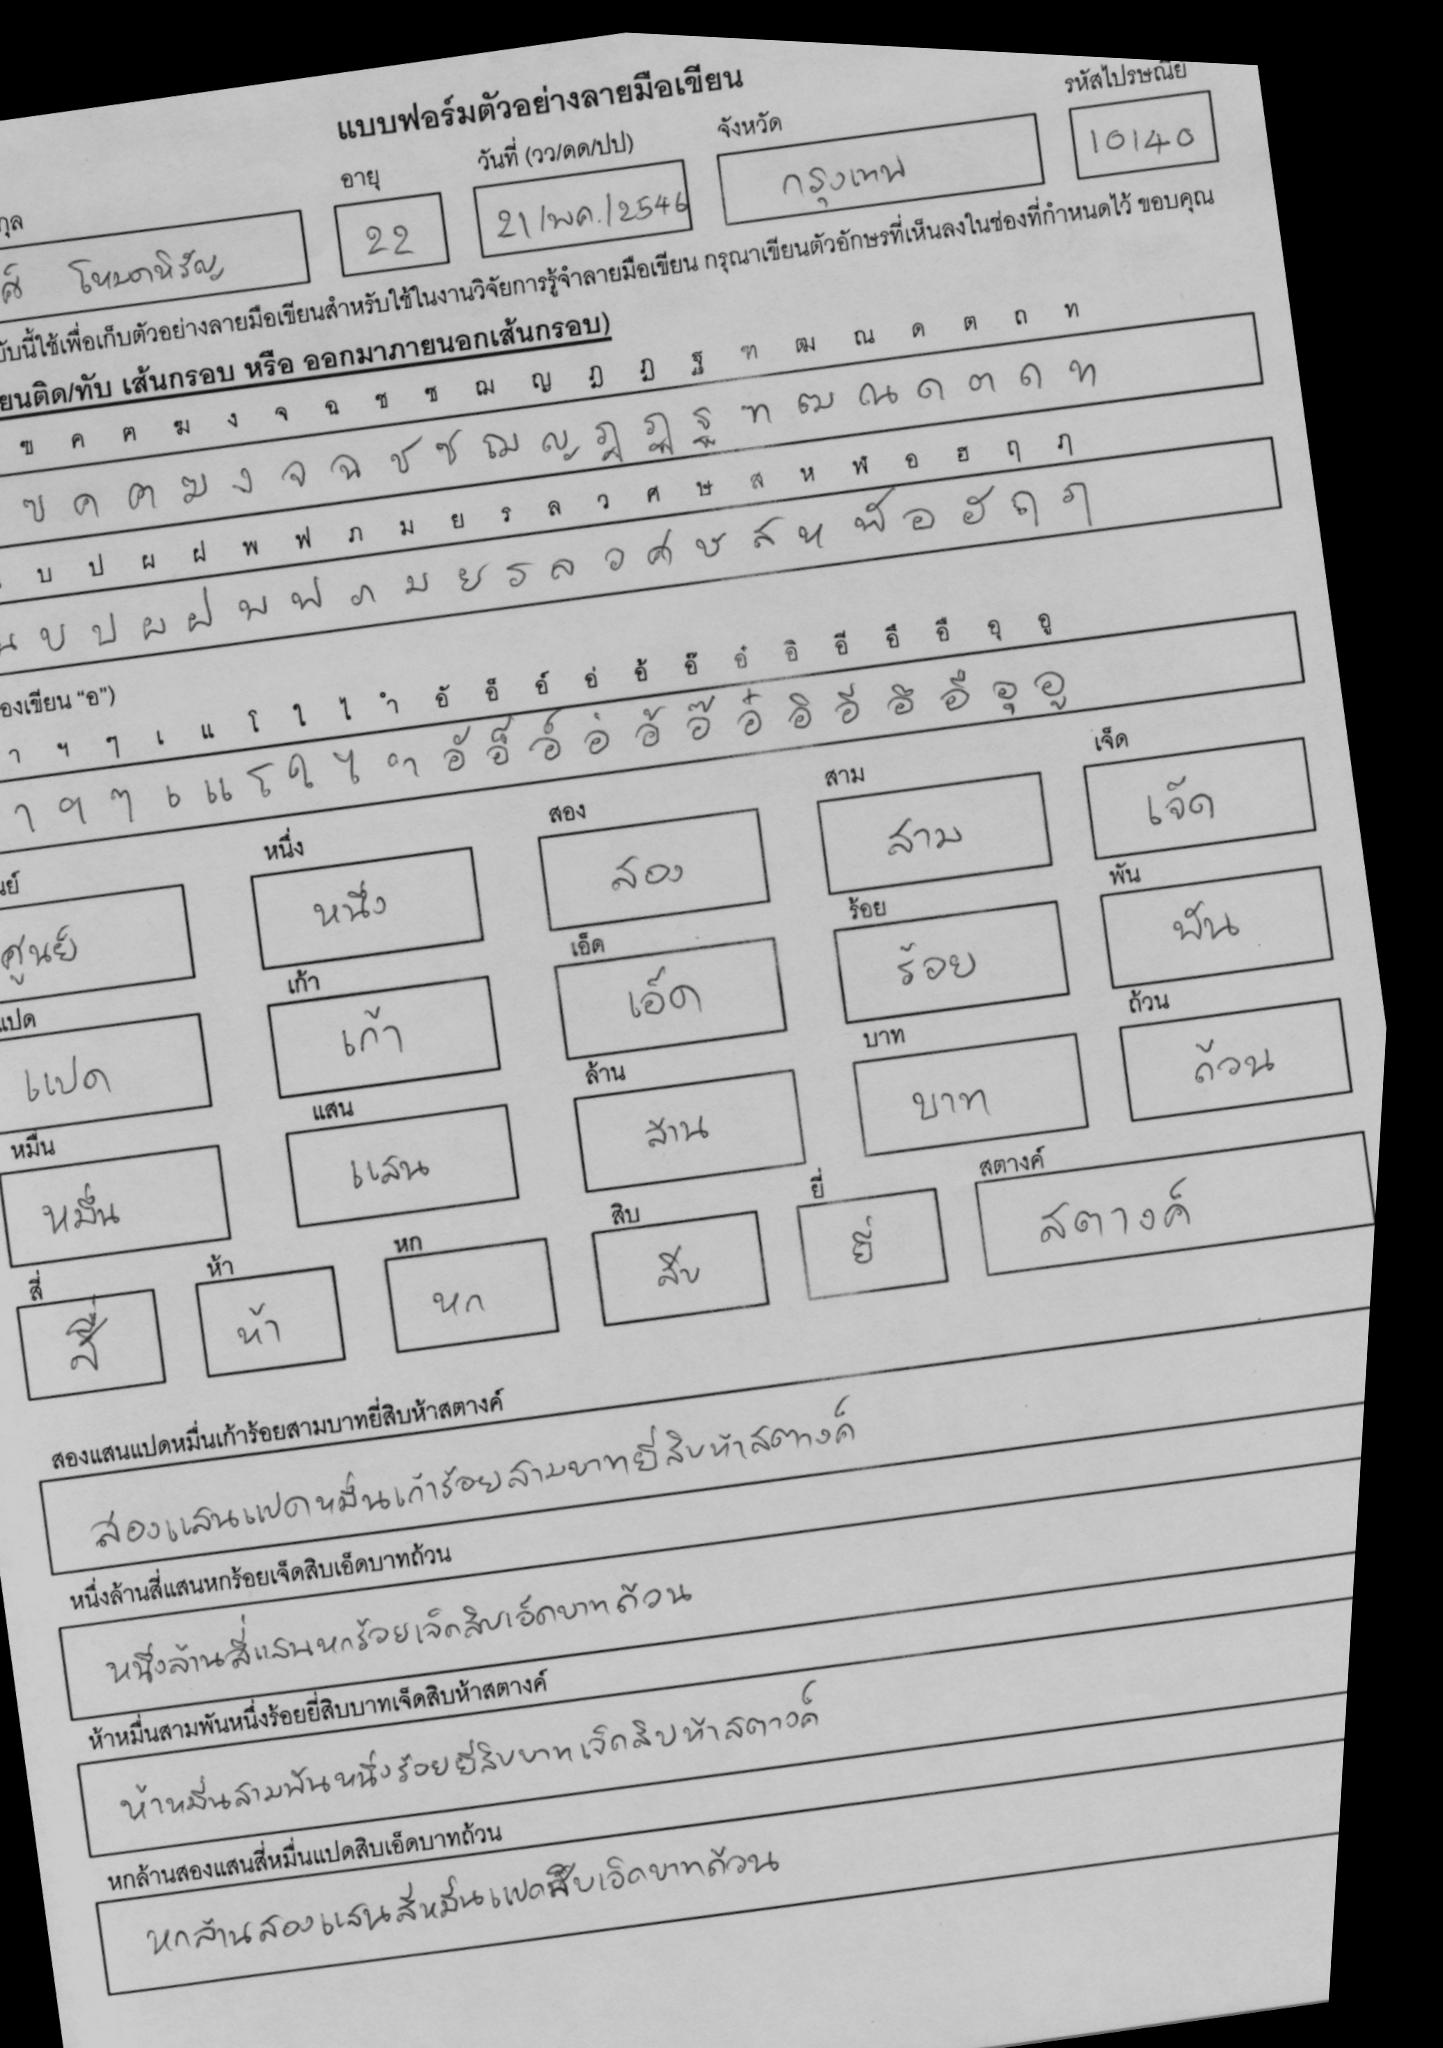 แบบฟอร์มตัวอย่างลายมือเขียน
อายุ วันที่ (วว/ดด/ปป) จังหวัด รหัสไปรษณีย์
22 21/พค./2546 กรุงเทพ 10140
นี้ใช้เพื่อเก็บตัวอย่างลายมือเขียนสำหรับใช้ในงานวิจัยการรู้จำลายมือเขียน กรุณาเขียนตัวอักษรที่เห็นลงในช่องที่กำหนดไว้ ขอบคุณ
ยนติด/ทับ เส้นกรอบ หรือ ออกมาภายนอกเส้นกรอบ)
ฃ ค ฅ ฆ ง จ ฉ ช ซ ฌ ญ ฎ ฏ ฐ ฑ ฒ ณ ด ต ถ ท
ฃ ค ฅ ฆ ง จ ฉ ช ซ ฌ ญ ฎ ฏ ฐ ฑ ฒ ณ ด ต ถ ท
บ ป ผ ฝ พ ฟ ภ ม ย ร ล ว ศ ษ ส ห ฬ อ ฮ ฤ ฦ
น บ ป ผ ฝ พ ฟ ภ ม ย ร ล ว ศ ษ ส ห ฬ อ ฮ ฤ ฦ
องเขียน “อ”)
า ฯ ๆ เ แ โ ใ ไ ำ อั อ็ อ์ อ่ อ้ อ๊ อ๋ อิ อี อึ อื อุ อู
า ฯ ๆ เ แ โ ใ ไ ำ อั อ็ อ์ อ่ อ้ อ๊ อ๋ อิ อี อึ อื อุ อู
หนึ่ง สอง สาม เจ็ด
ศูนย์ หนึ่ง สอง สาม เจ็ด
แปด เก้า เอ็ด ร้อย พัน
แปด เก้า เอ็ด ร้อย พัน
หมื่น แสน ล้าน บาท ถ้วน
หมื่น แสน ล้าน บาท ถ้วน
สี่ ห้า หก สิบ ยี่ สตางค์
สี่ ห้า หก สิบ ยี่ สตางค์
สองแสนแปดหมื่นเก้าร้อยสามบาทยี่สิบห้าสตางค์
สองแสนแปดหมื่นเก้าร้อยสามบาทยี่สิบห้าสตางค์
หนึ่งล้านสี่แสนหกร้อยเจ็ดสิบเอ็ดบาทถ้วน
หนึ่งล้านสี่แสนหกร้อยเจ็ดสิบเอ็ดบาทถ้วน
ห้าหมื่นสามพันหนึ่งร้อยยี่สิบบาทเจ็ดสิบห้าสตางค์
ห้าหมื่นสามพันหนึ่งร้อยยี่สิบบาทเจ็ดสิบห้าสตางค์
หกล้านสองแสนสี่หมื่นแปดสิบเอ็ดบาทถ้วน
หกล้านสองแสนสี่หมื่นแปดสิบเอ็ดบาทถ้วน